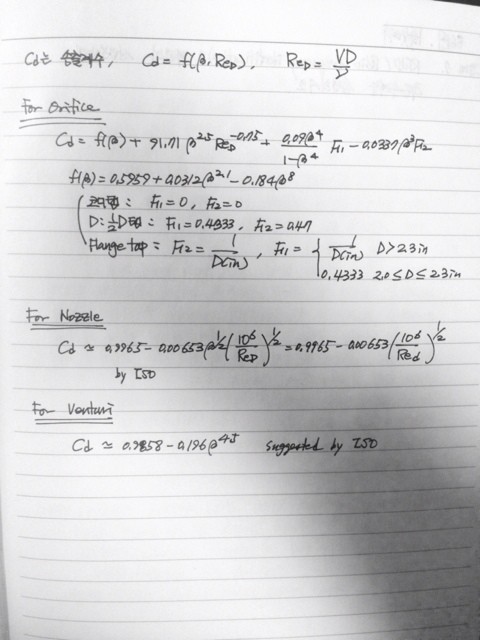 Cd는 방출계수, Cd = f(β, Re_D), Re_D = VD/ν
For Orifice
Cd = f(β) + 91.71 β^2.5 Re_D^-0.75 + 0.09β^4/(1-β^4) F1 - 0.0337β^3 F2
f(β) = 0.5959 + 0.0312β^2.1 - 0.184β^8
F1 = 0, F2 = 0
D: ½D F1 = 0.4333, F2 = 0.47
Flange tap: F2 = 1/D(in), F1 = { 1/D(in) D>2.3in
0.4333 2.0≤D≤2.3in
For Nozzle
Cd ≃ 0.9965 - 0.00653β^½ (10^6/Re_D)^½ = 0.9965 - 0.00653 (10^6/Re_d)^½
by ISO
For Venturi
Cd ≃ 0.9858 - 0.196β^4.5 suggested by ISO